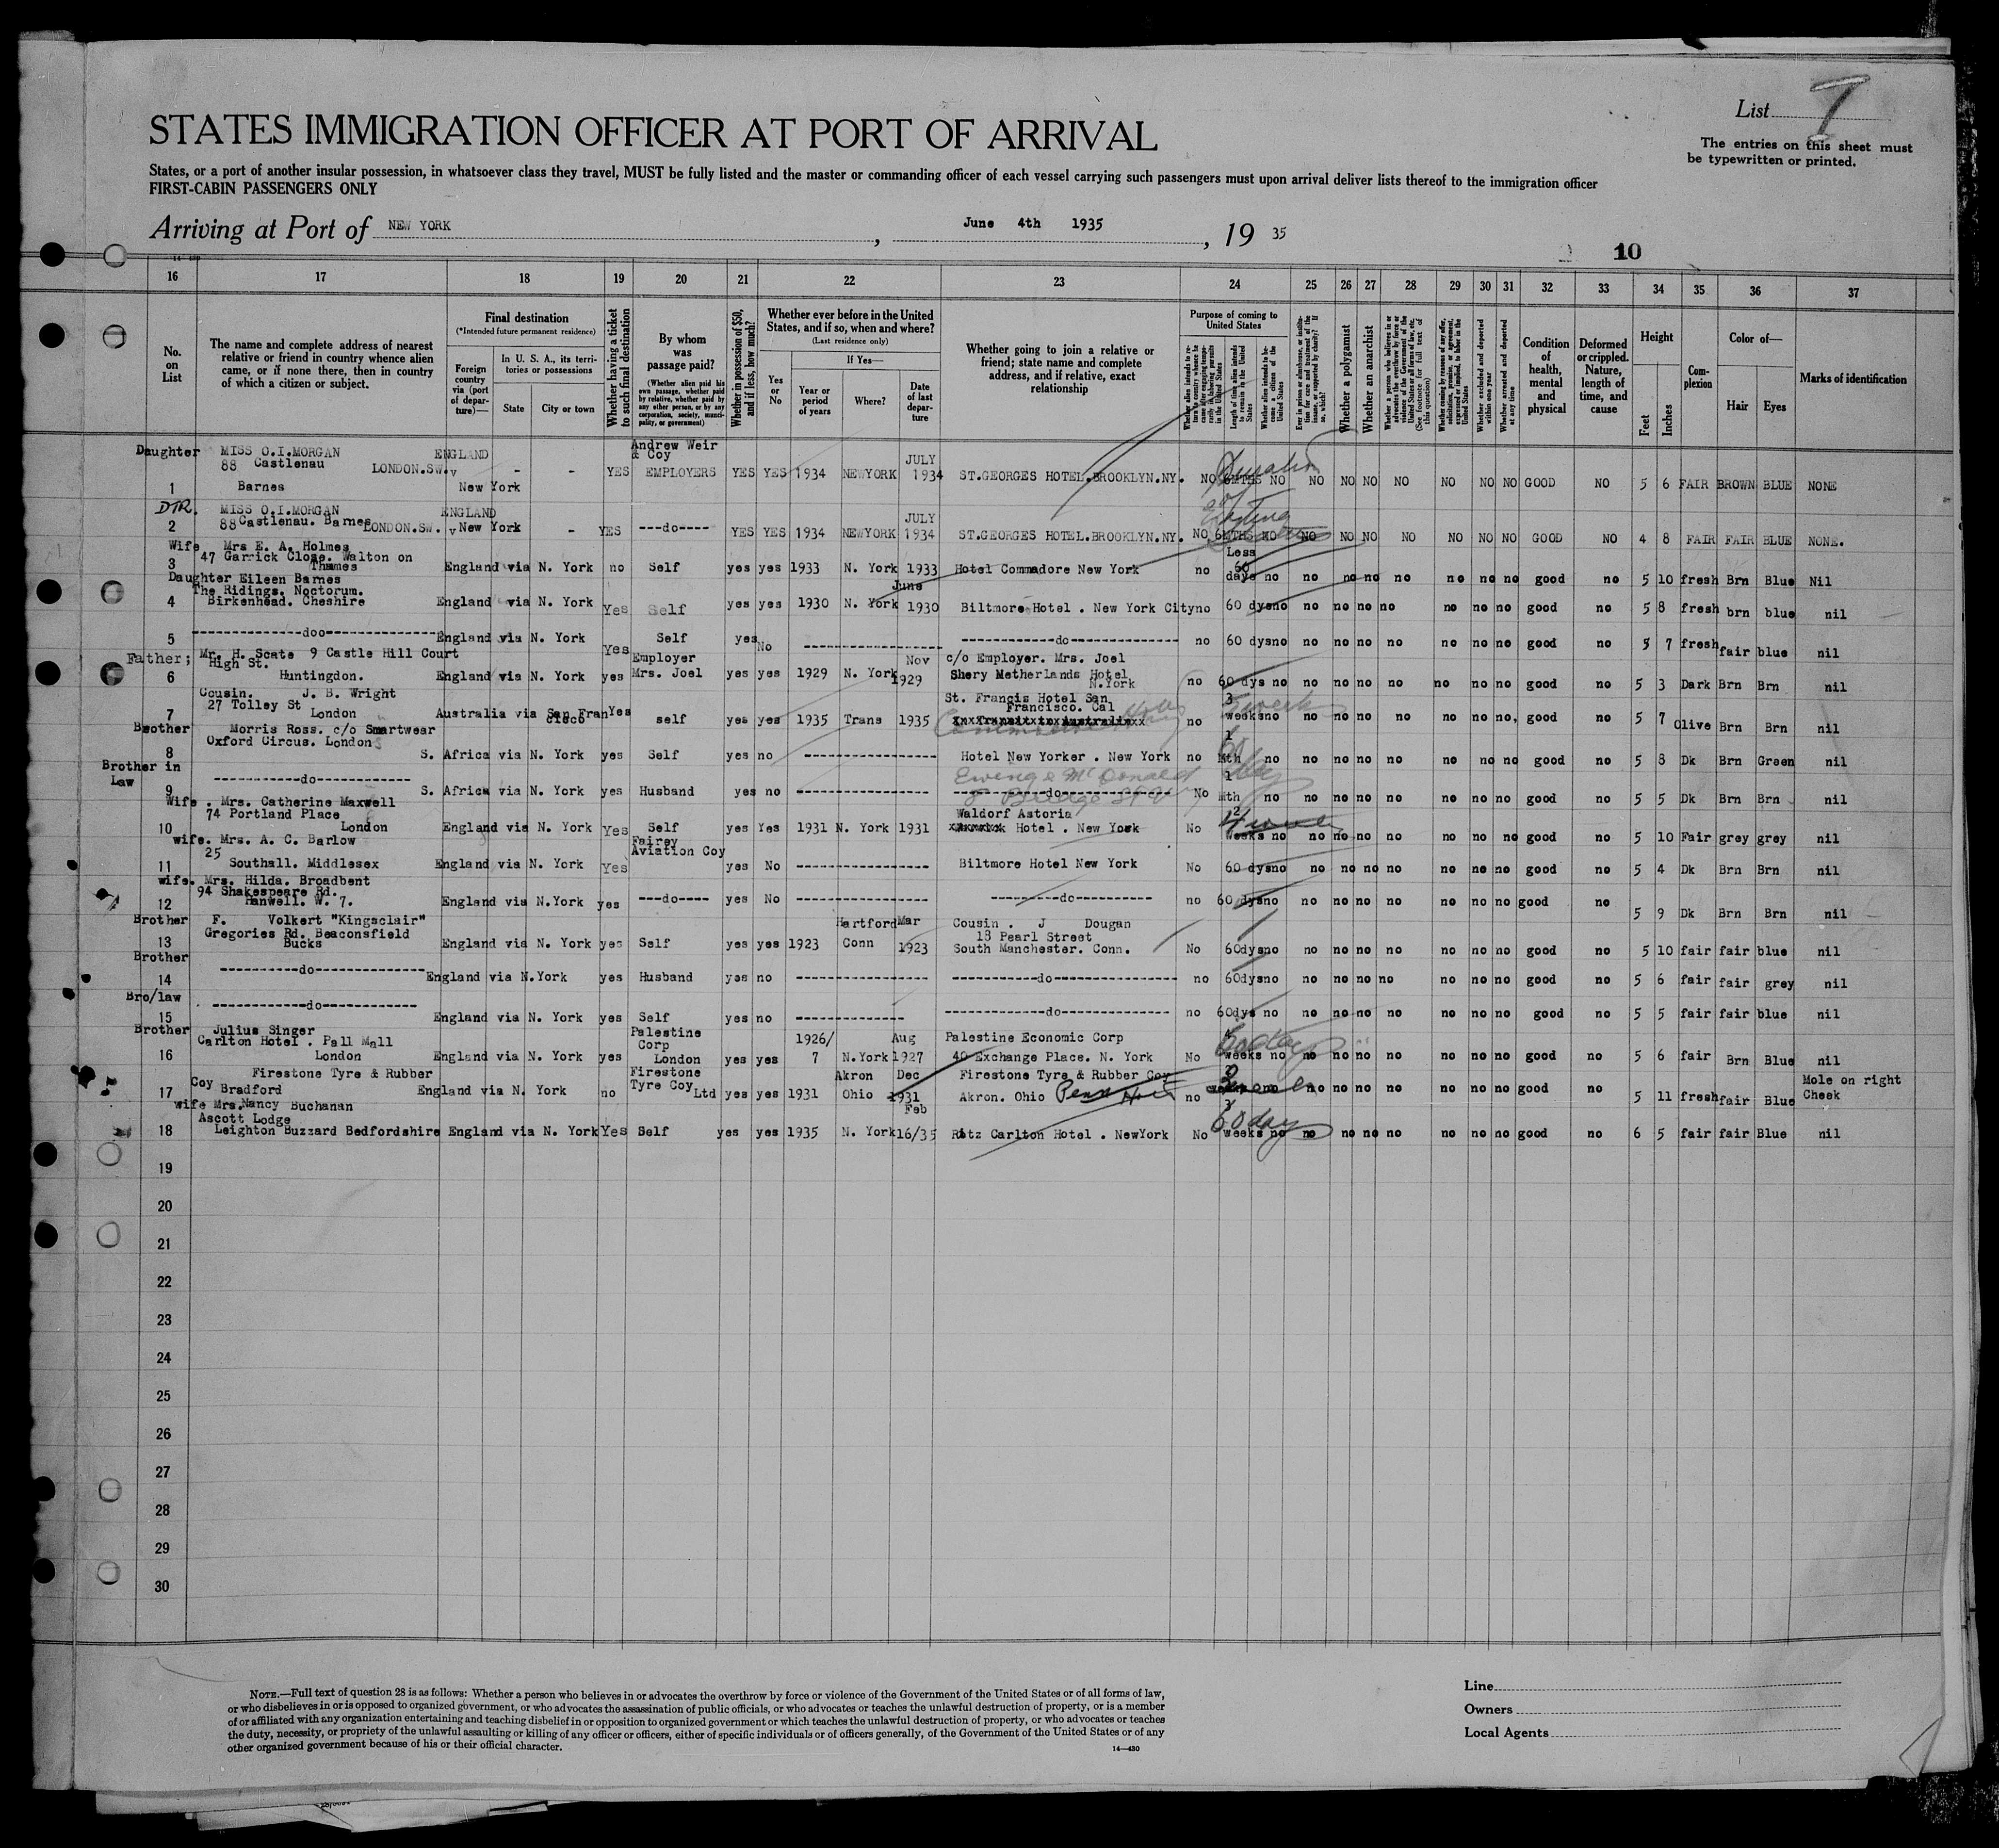 List 7
STATES IMMIGRATION OFFICER AT PORT OF ARRIVAL
The entries on this sheet must
be typewritten or printed.
States, or a port of another insular possession, in whatsoever class they travel, MUST be fully listed and the master or commanding officer of each vessel carrying such passengers must upon arrival deliver lists thereof to the immigration officer
FIRST-CABIN PASSENGERS ONLY
Arriving at Port of NEW YORK, June 4th 1935, 19 35
10
16 17 18 19 20 21 22 23 24 25 26 27 28 29 30 31 32 33 34 35 36 37
No. on List
The name and complete address of nearest relative or friend in country whence alien came, or if none there, then in country of which a citizen or subject.
Final destination
(*Intended future permanent residence)
Foreign country via (port of departure)—
In U. S. A., its territories or possessions
State City or town
Whether having a ticket to such final destination
By whom was passage paid?
(Whether alien paid his own passage, whether paid by relative, whether paid by any other person, or by any corporation, society, municipality, or government)
Whether in possession of $50, and if less, how much?
Whether ever before in the United States, and if so, when and where?
(Last residence only)
Yes or No
If Yes—
Year or period of years
Where?
Date of last departure
Whether going to join a relative or friend; state name and complete address, and if relative, exact relationship
Purpose of coming to United States
Length of time alien intends to remain in the United States
Whether alien intends to become a citizen of the United States
Whether a polygamist
Whether an anarchist
Whether excluded and deported within one year
Whether arrested and deported at any time
Condition of health, mental and physical
Deformed or crippled. Nature, length of time, and cause
Height
Feet Inches
Complexion
Color of—
Hair Eyes
Marks of identification
Daughter MISS O.I.MORGAN ENGLAND Andrew Weir & Coy JULY
88 Castlenau LONDON.SW. v - - YES EMPLOYERS YES YES 1934 NEWYORK 1934 ST.GEORGES HOTEL.BROOKLYN.NY. NO 6MTHS NO NO NO NO NO NO NO NO GOOD NO 5 6 FAIR BROWN BLUE NONE
1 Barnes New York
Duration of
DTR. MISS O.I.MORGAN ENGLAND JULY
2 88 Castlenau. Barnes LONDON.SW. v New York - YES ----do---- YES YES 1934 NEWYORK 1934 ST.GEORGES HOTEL.BROOKLYN.NY. NO 6MTHS NO NO NO NO NO NO NO NO GOOD NO 4 8 FAIR FAIR BLUE NONE.
Wife Mrs E. A. Holmes
47 Garrick Close. Walton on Less
3 Thames England via N. York no Self yes yes 1933 N. York 1933 Hotel Commadore New York no 60 days no no no no no no no no good no 5 10 fresh Brn Blue Nil
Daughter Eileen Barnes
The Ridings. Noctorum. June
4 Birkenhead. Cheshire England via N. York Yes Self yes yes 1930 N. York 1930 Biltmore Hotel . New York City no 60 dys no no no no no no no no good no 5 8 fresh brn blue nil
5 ---doo--- England via N. York Yes Self yes No --- ---do--- no 60 dys no no no no no no no no good no 5 7 fresh fair blue nil
Father; Mr. H. Scate 9 Castle Hill Court Employer Nov c/o Employer. Mrs. Joel
High St.
6 Huntingdon. England via N. York yes Mrs. Joel yes yes 1929 N. York 1929 Shery Netherlands Hotel N.York no 60 dys no no no no no no no no good no 5 3 Dark Brn Brn nil
Cousin. J. B. Wright St. Francis Hotel San
27 Tolley St Francisco. Cal 3
7 London Australia via San Francisco Yes self yes yes 1935 Trans 1935 no weeks no no no no no no no no, good no 5 7 Olive Brn Brn nil
Brother Morris Ross. c/o Smartwear
Oxford Circus. London 1
8 S. Africa via N. York yes Self yes no --- Hotel New Yorker . New York no Mth no no no no no no no no good no 5 8 Dk Brn Green nil
Brother in Law Ewing & McDonald 1
9 ---do--- S. Africa via N. York yes Husband yes no --- ---do--- No Mth no no no no no no no no good no 5 5 Dk Brn Brn nil
Wife . Mrs. Catherine Maxwell
74 Portland Place Waldorf Astoria 2
10 London England via N. York Yes Self yes Yes 1931 N. York 1931 Hotel . New York No weeks no no no no no no no no good no 5 10 Fair grey grey nil
wife. Mrs. A. C. Barlow Fairey
25 Aviation Coy
11 Southall. Middlesex England via N. York Yes yes No --- Biltmore Hotel New York No 60 dys no no no no no no no no good no 5 4 Dk Brn Brn nil
wife. Mrs. Hilda. Broadbent
94 Shakespeare Rd.
12 Hanwell. W. 7. England via N.York yes ----do---- yes No --- ---do--- no 60 dys no no no no no no no no good no 5 9 Dk Brn Brn nil
Brother F. Volkert "Kingsclair" Hartford Mar Cousin . J Dougan
Gregories Rd. Beaconsfield 18 Pearl Street
13 Bucks England via N. York yes Self yes yes 1923 Conn 1923 South Manchester. Conn. No 60dys no no no no no no no no good no 5 10 fair fair blue nil
Brother
14 ---do--- England via N.York yes Husband yes no --- ---do--- no 60dys no no no no no no no no good no 5 6 fair fair grey nil
Bro/law
15 ---do--- England via N. York yes Self yes no --- ---do--- no 60dys no no no no no no no no good no 5 5 fair fair blue nil
Brother Julius Singer Palestine 1926/ Aug Palestine Economic Corp
Carlton Hotel . Pall Mall Corp
16 London England via N. York yes London yes yes 7 N.York 1927 40 Exchange Place. N. York No weeks no no no no no no no no good no 5 6 fair Brn Blue nil
Firestone Tyre & Rubber Firestone Akron Dec Firestone Tyre & Rubber Coy Mole on right
Coy Bradford Tyre Coy Ltd
17 England via N. York no yes yes 1931 Ohio 1931 Akron. Ohio no no no no no no no no good no 5 11 fresh fair Blue Cheek
wife Mrs. Nancy Buchanan Feb 3
Ascott Lodge 60 days
18 Leighton Buzzard Bedfordshire England via N. York Yes Self yes yes 1935 N. York 16/35 Ritz Carlton Hotel . NewYork No weeks no no no no no no no no good no 6 5 fair fair Blue nil
19
20
21
22
23
24
25
26
27
28
29
30
NOTE.—Full text of question 28 is as follows: Whether a person who believes in or advocates the overthrow by force or violence of the Government of the United States or of all forms of law,
or who disbelieves in or is opposed to organized government, or who advocates the assassination of public officials, or who advocates or teaches the unlawful destruction of property, or is a member
of or affiliated with any organization entertaining and teaching disbelief in or opposition to organized government or which teaches the unlawful destruction of property, or who advocates or teaches
the duty, necessity, or propriety of the unlawful assaulting or killing of any officer or officers, either of specific individuals or of officers generally, of the Government of the United States or of any
other organized government because of his or their official character.
14—430
Line
Owners
Local Agents